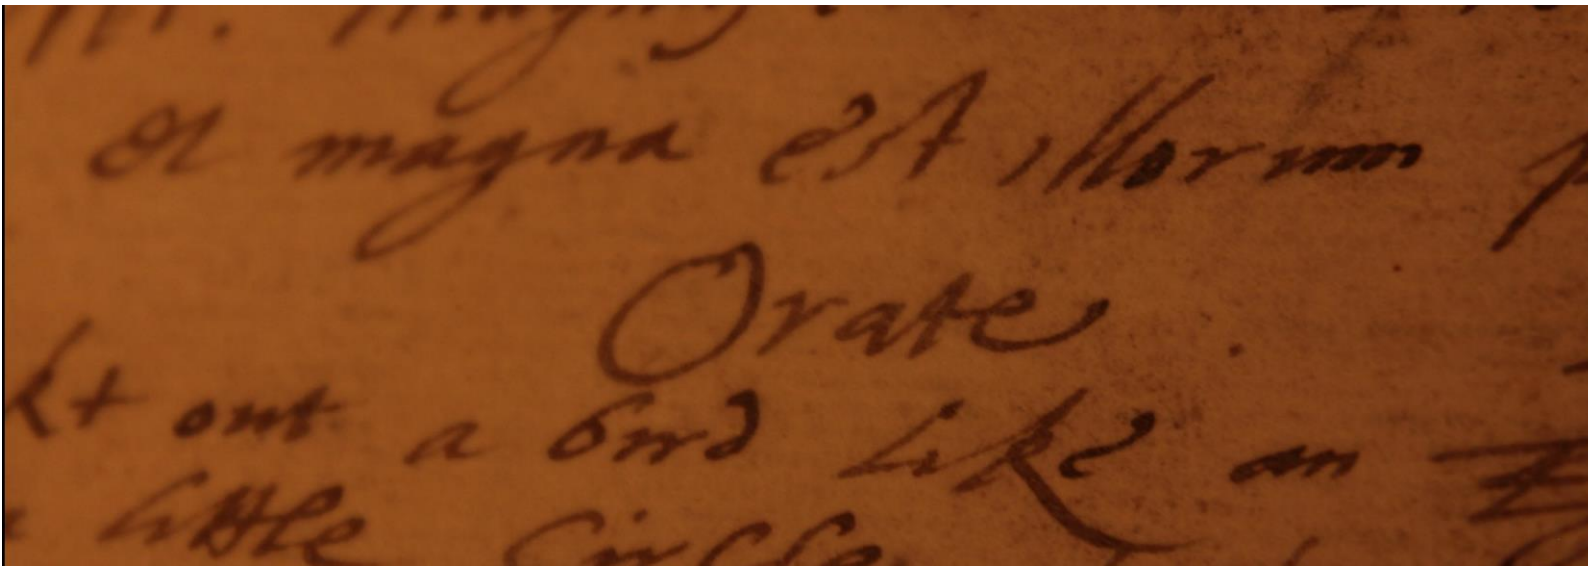 et magna est illorum
Orate.
out a bird like an
little Circle